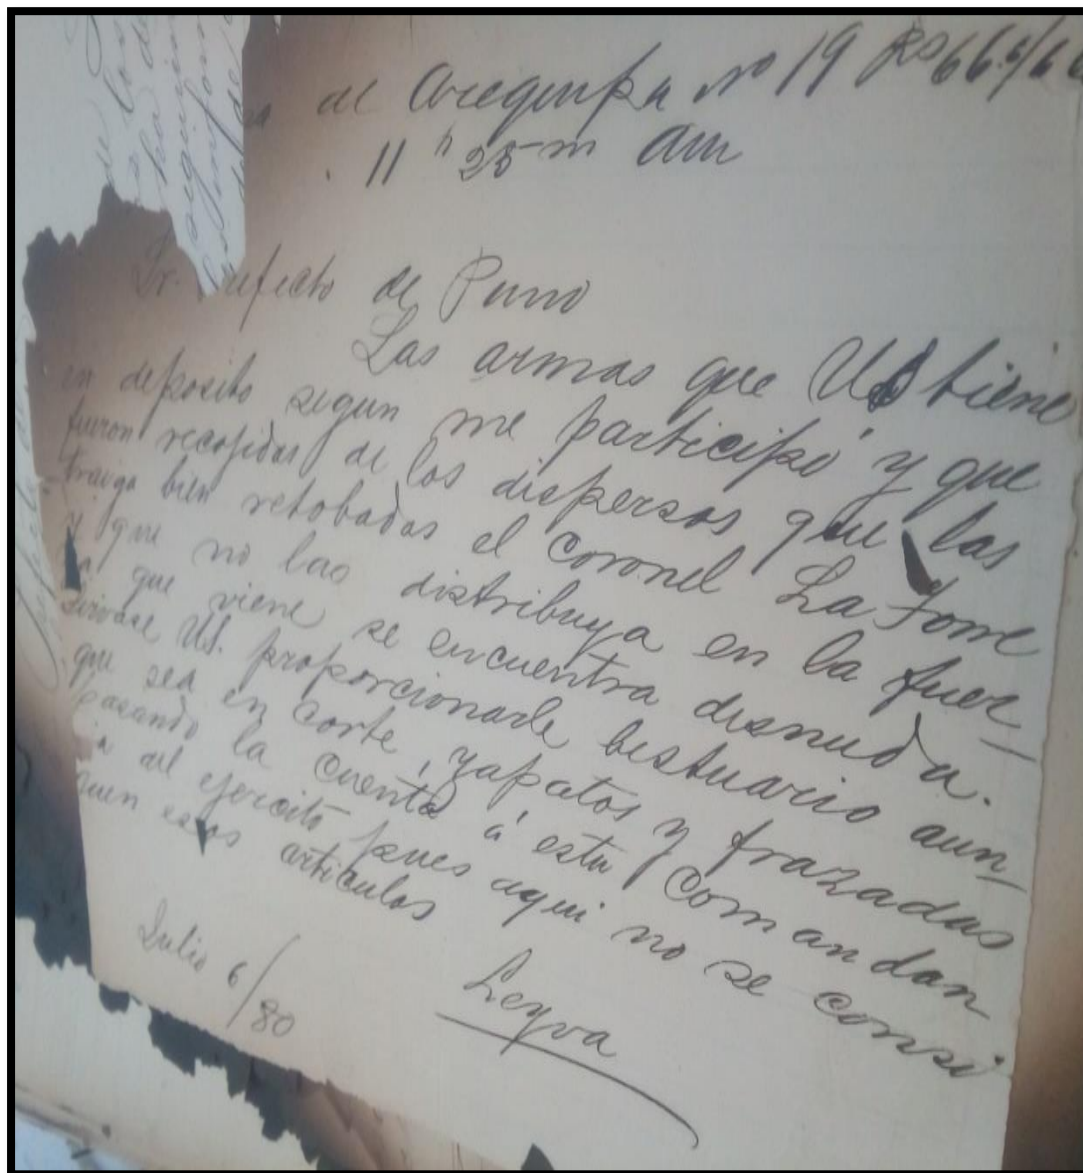 de Arequipa nº 19 Rs 66 6/6
11 h 25 m Am
Sr. Prefecto de Puno
Las armas que US tiene
en deposito segun me participó y que
fueron recojidas de los dispersos que las
traiga bien retobadas el Coronel La Torre
y que no las distribuya en la fuer-
za que viene se encuentra desnuda.
Sirvase US. proporcionarle bestuario aun-
que sea en corte, zapatos y frazadas
pasando la cuenta á esta Comandan
ia del ejercito pues aqui no se consi
guen esos articulos
Leyva
Julio 6/80